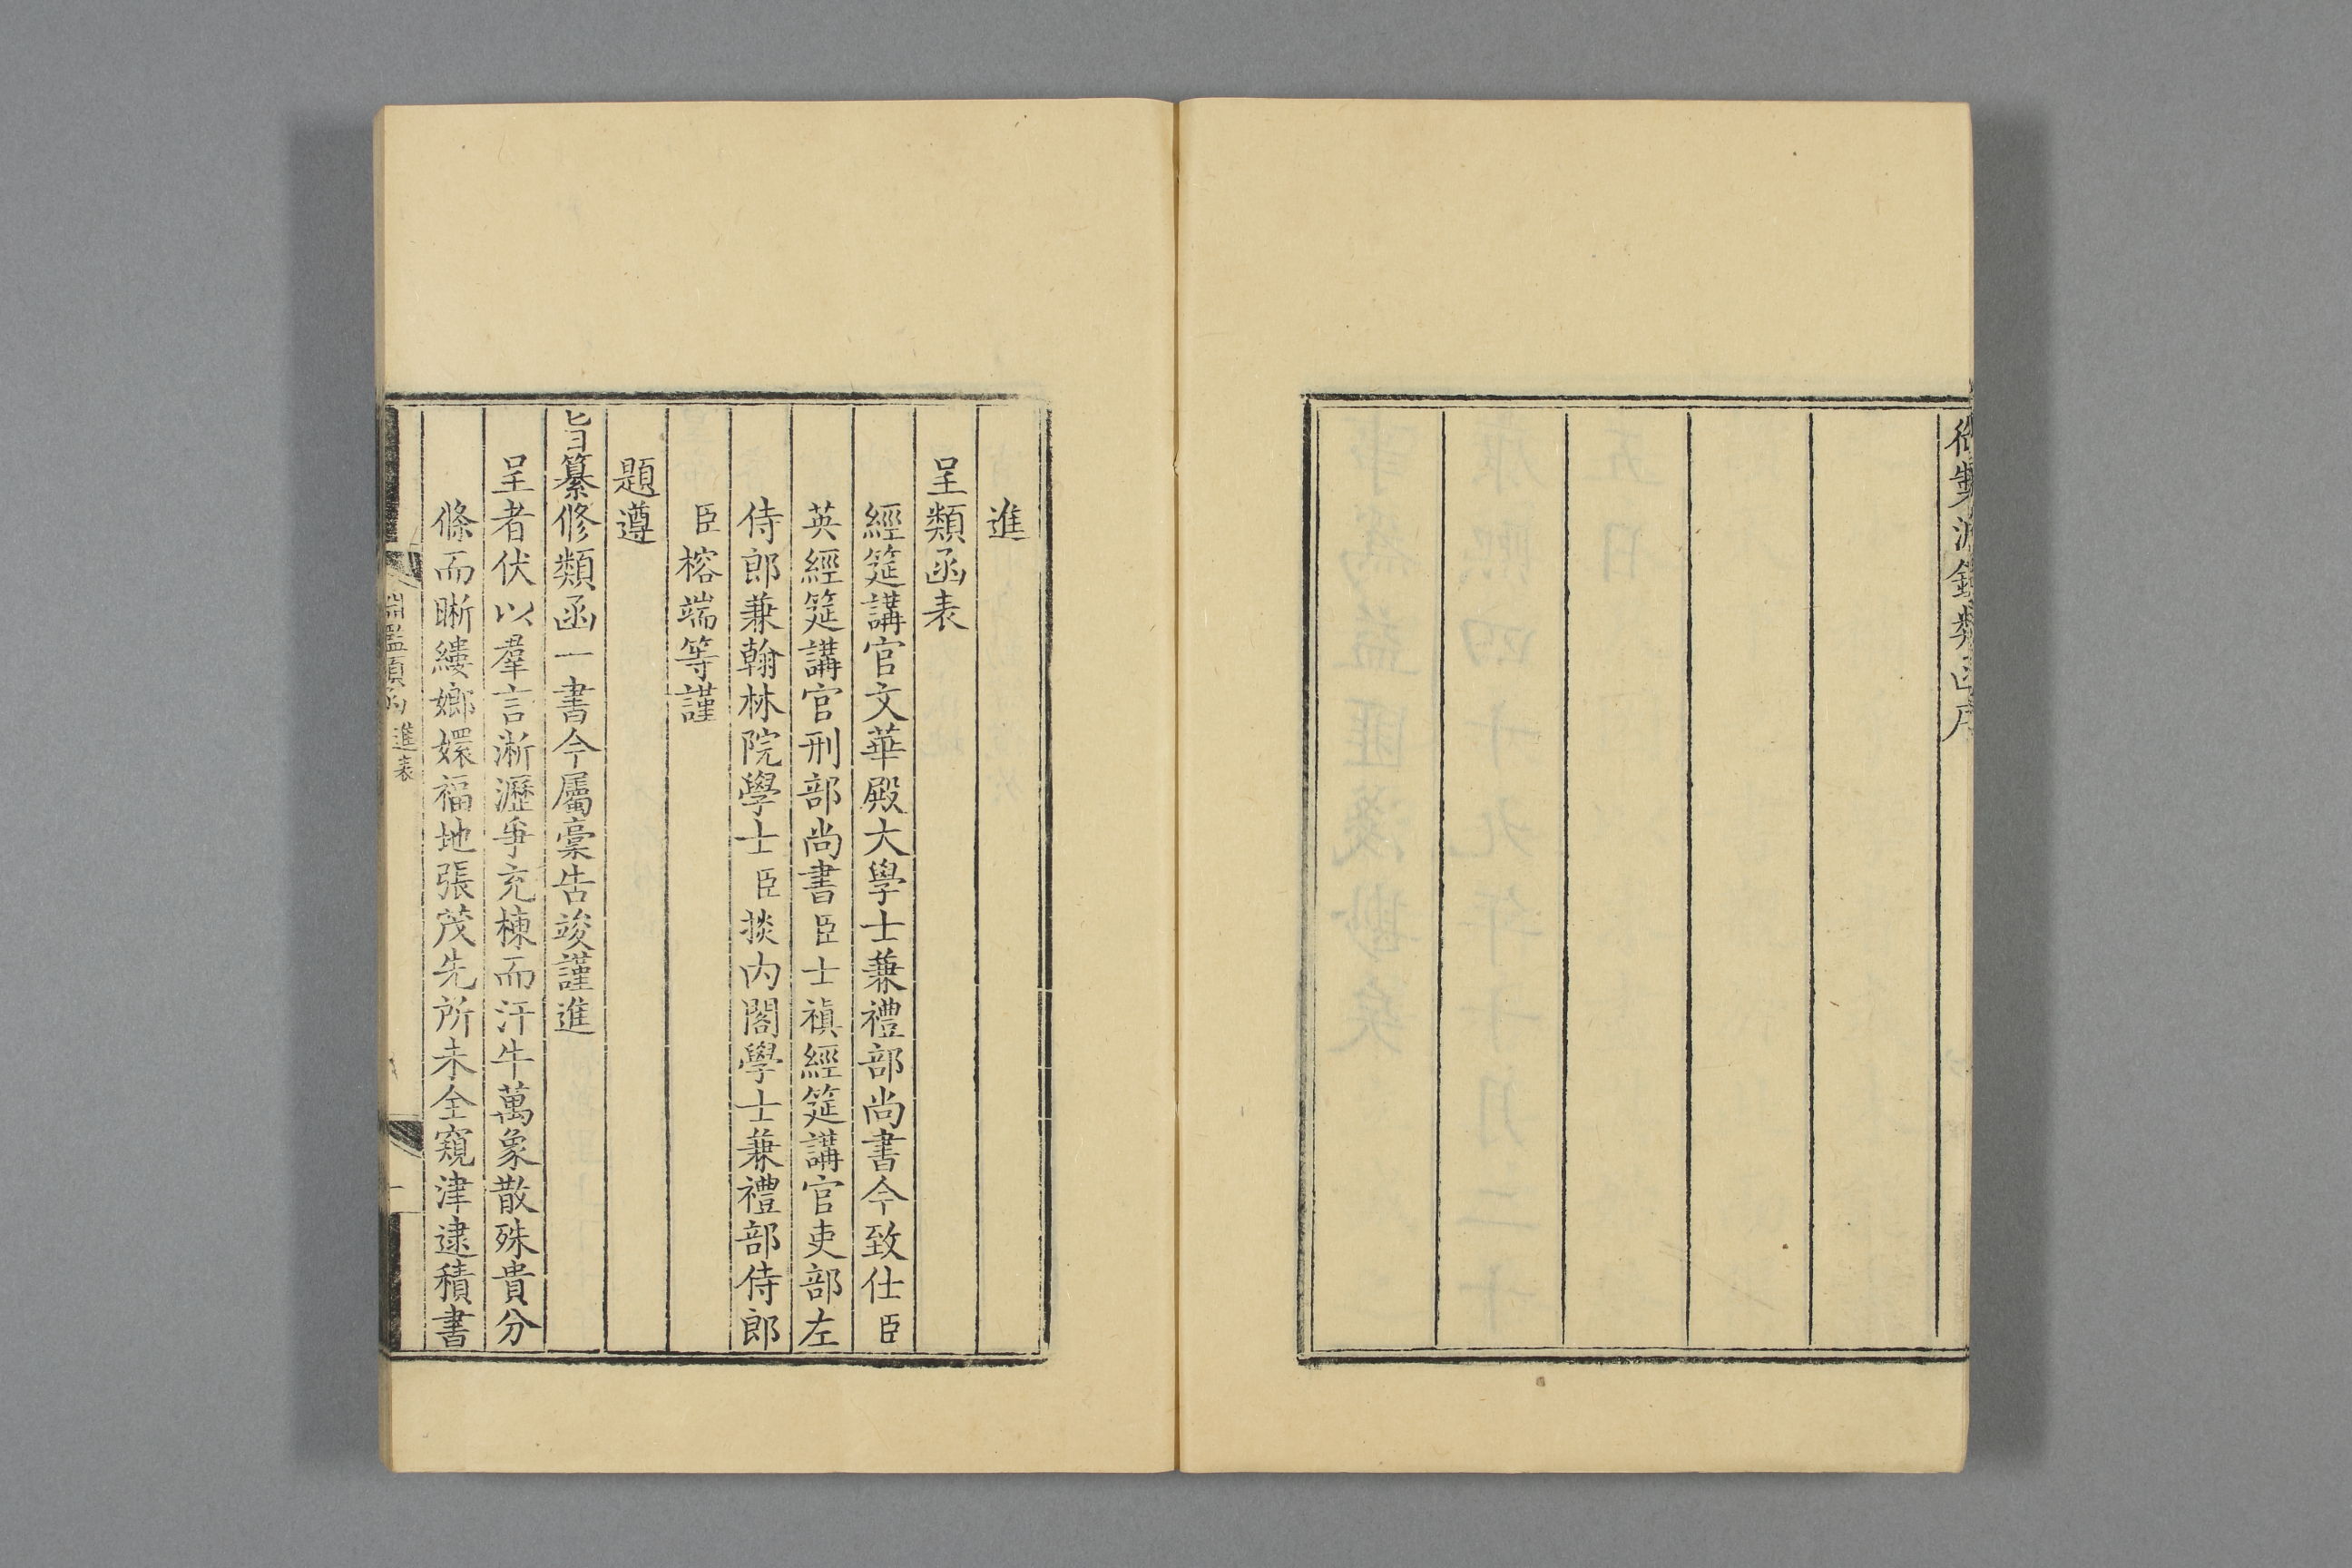 御製淵鑑類函序
進
呈類函表
經筵講官文華殿大學士兼禮部尚書今致仕臣
英經筵講官刑部尚書臣士禛經筵講官吏部左
侍郎兼翰林院學士臣掞内閣學士兼禮部侍郎
臣榕端等謹
題遵
旨纂修類函一書今屬稾告竣謹進
呈者伏以羣言淅瀝爭充棟而汗牛萬象散殊貴分
條而晰縷嫏嬛福地張茂先所未全窺津逮積書
淵鑑類函 進表 一